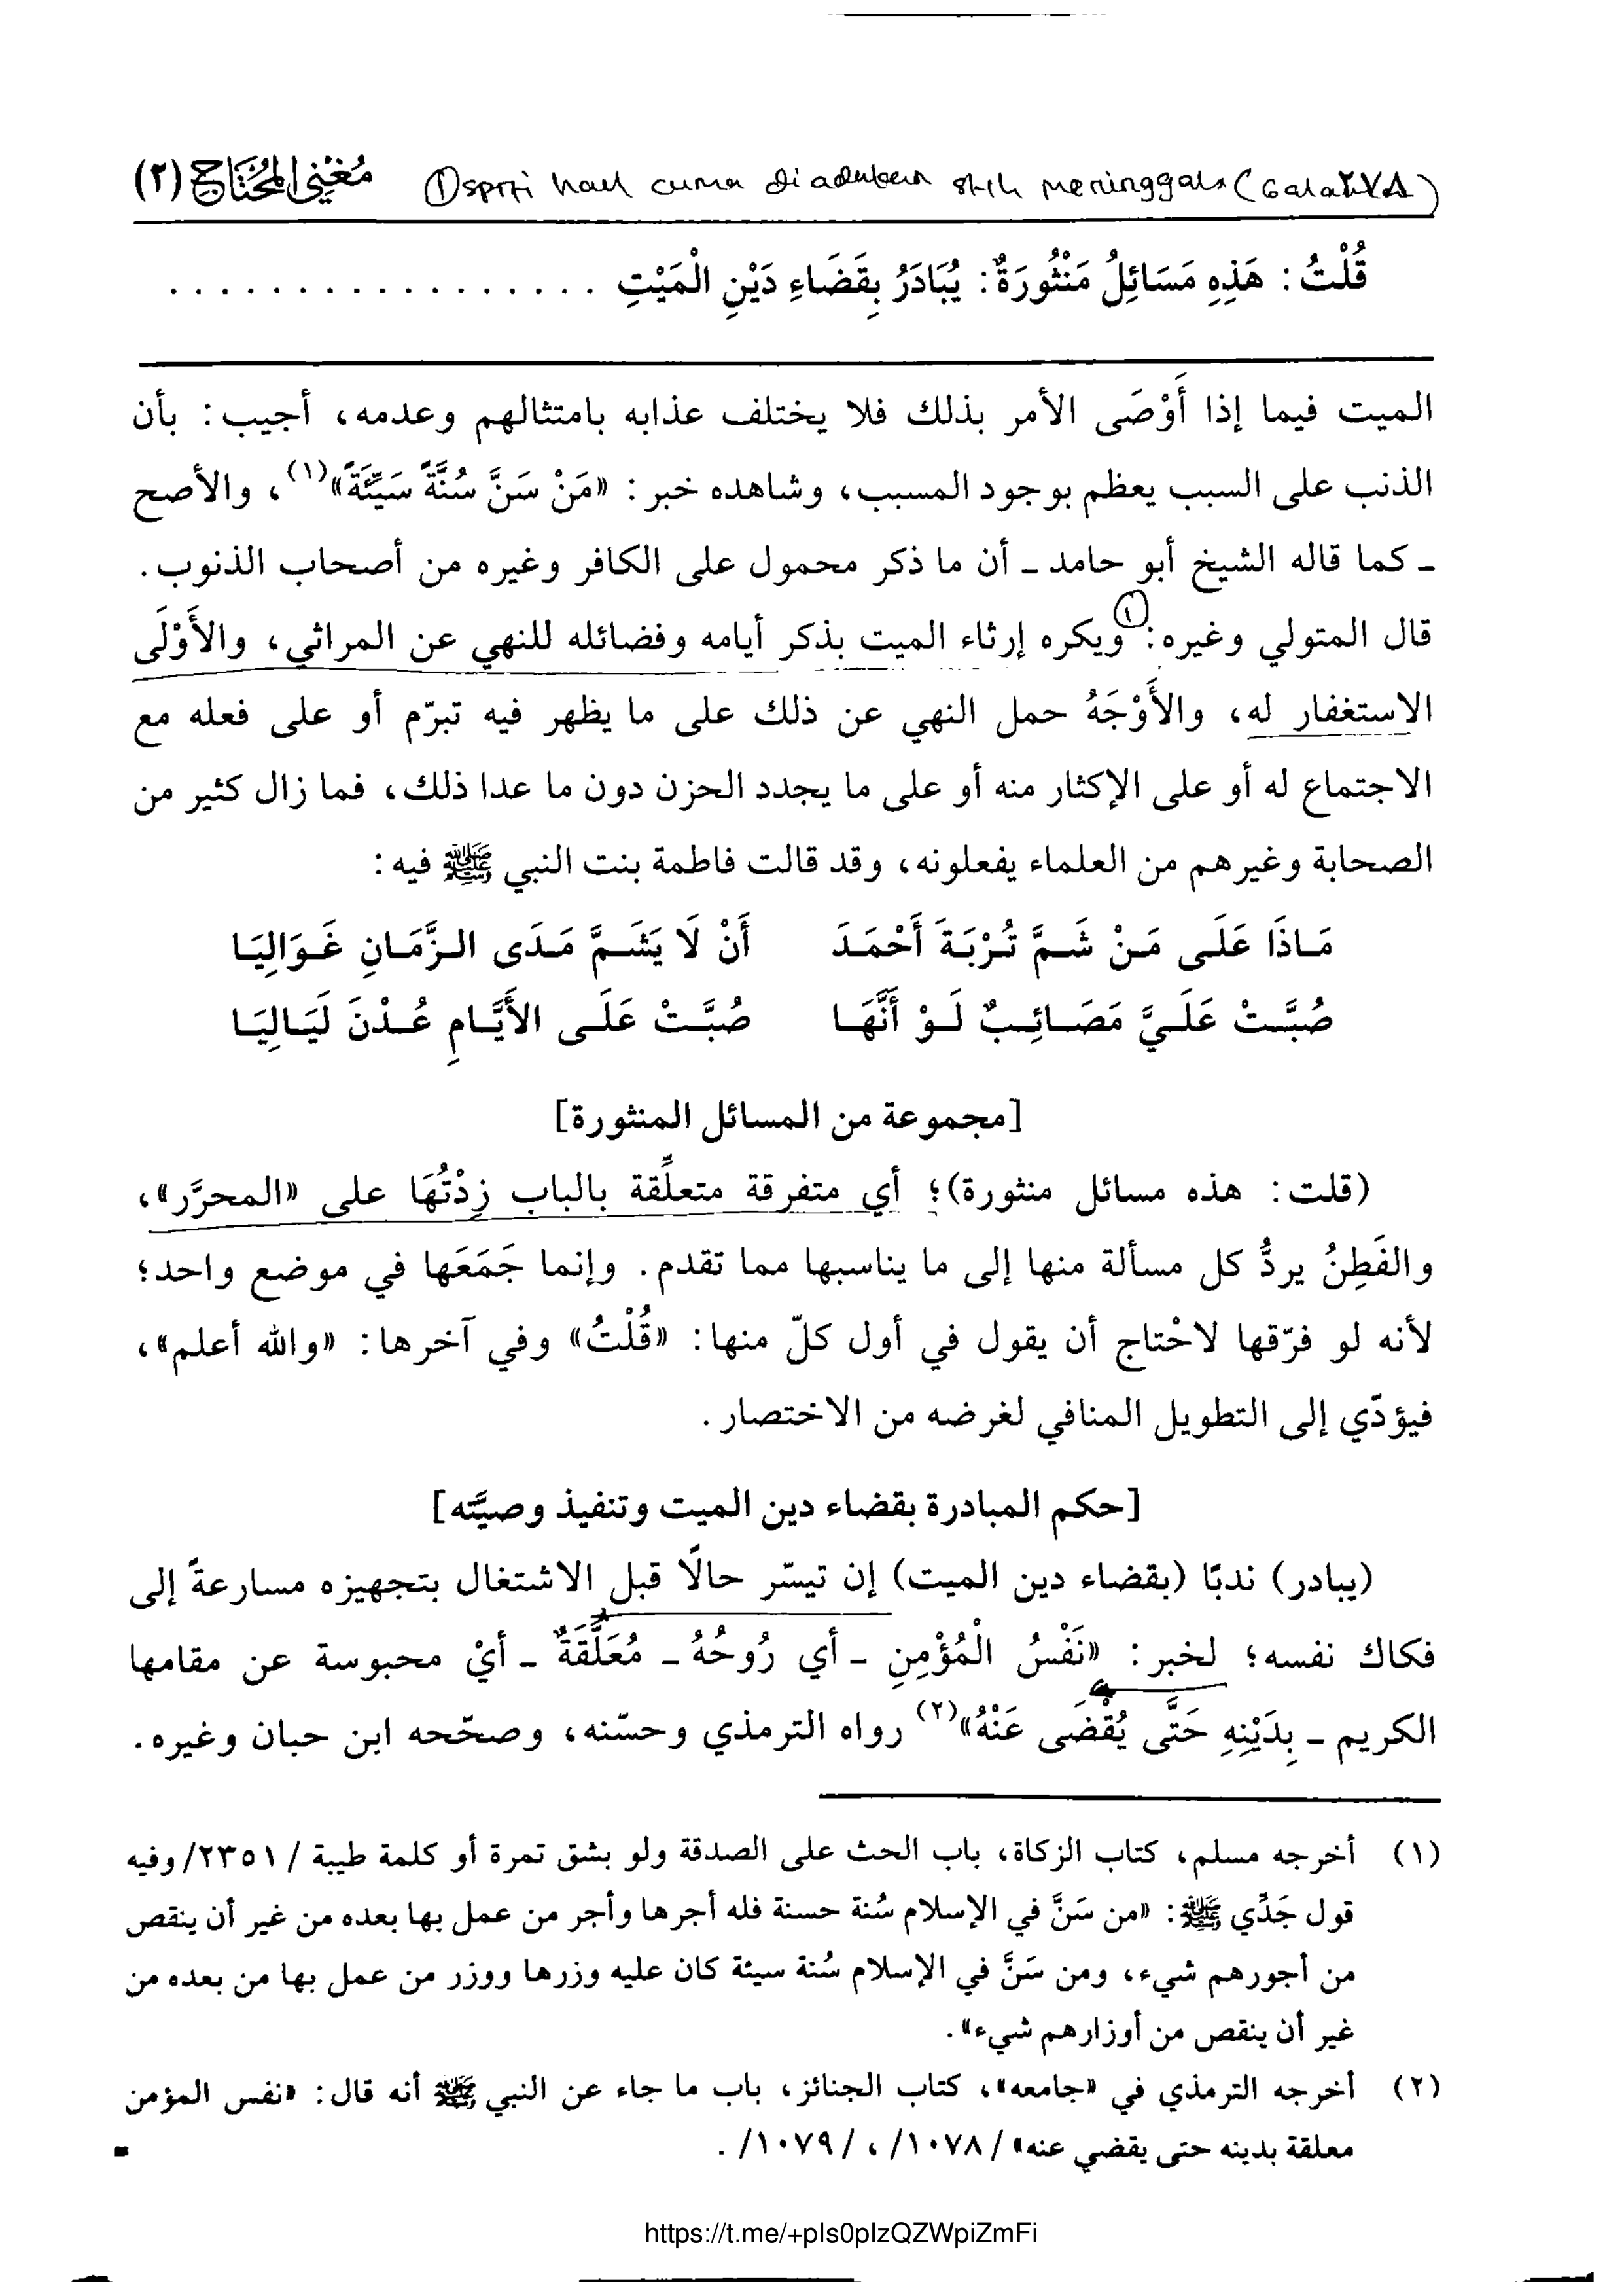 مُغْنِي المُحْتَاج (٢)
① sprti haul cuma diadakan stlh meninggal
قُلْتُ: هَذِهِ مَسَائِلُ مَنْثُورَةٌ: يُبَادَرُ بِقَضَاءِ دَيْنِ الْمَيْتِ . . . . . . . . . . . . . . . .
الميت فيما إذا أَوْصَى الأمر بذلك فلا يختلف عذابه بامتثالهم وعدمه، أجيب: بأن
الذنب على السبب يعظم بوجود المسبب، وشاهده خبر: «مَنْ سَنَّ سُنَّةً سَيِّئَةً»(١)، والأصح
ـ كما قاله الشيخ أبو حامد ـ أن ما ذكر محمول على الكافر وغيره من أصحاب الذنوب.
قال المتولي وغيره: ① ويكره إرثاء الميت بذكر أيامه وفضائله للنهي عن المراثي، والأَوْلَى
الاستغفار له، والأَوْجَهُ حمل النهي عن ذلك على ما يظهر فيه تبرّم أو على فعله مع
الاجتماع له أو على الإكثار منه أو على ما يجدد الحزن دون ما عدا ذلك، فما زال كثير من
الصحابة وغيرهم من العلماء يفعلونه، وقد قالت فاطمة بنت النبي ﷺ فيه:
مَاذَا عَلَى مَنْ شَمَّ تُرْبَةَ أَحْمَدَ أَنْ لَا يَشَمَّ مَدَى الزَّمَانِ غَوَالِيَا
صُبَّتْ عَلَيَّ مَصَائِبٌ لَوْ أَنَّهَا صُبَّتْ عَلَى الأَيَّامِ عُدْنَ لَيَالِيَا
[مجموعة من المسائل المنثورة]
(قلت: هذه مسائل منثورة)؛ أي متفرقة متعلِّقة بالباب زِدْتُهَا على «المحرَّر»،
والفَطِنُ يردُّ كل مسألة منها إلى ما يناسبها مما تقدم. وإنما جَمَعَها في موضع واحد؛
لأنه لو فرّقها لاحْتاج أن يقول في أول كلّ منها: «قُلْتُ» وفي آخرها: «والله أعلم»،
فيؤدّي إلى التطويل المنافي لغرضه من الاختصار.
[حكم المبادرة بقضاء دين الميت وتنفيذ وصيَّته]
(يبادر) ندبًا (بقضاء دين الميت) إن تيسّر حالًا قبل الاشتغال بتجهيزه مسارعةً إلى
فكاك نفسه؛ لخبر: «نَفْسُ الْمُؤْمِنِ ـ أي رُوحُهُ ـ مُعَلَّقَةٌ ـ أيْ محبوسة عن مقامها
الكريم ـ بِدَيْنِهِ حَتَّى يُقْضَى عَنْهُ»(٢) رواه الترمذي وحسّنه، وصحّحه ابن حبان وغيره.
(١) أخرجه مسلم، كتاب الزكاة، باب الحث على الصدقة ولو بشق تمرة أو كلمة طيبة /٢٣٥١/ وفيه
قول جَدِّي ﷺ: «من سَنَّ في الإسلام سُنة حسنة فله أجرها وأجر من عمل بها بعده من غير أن ينقص
من أجورهم شيء، ومن سَنَّ في الإسلام سُنة سيئة كان عليه وزرها ووزر من عمل بها من بعده من
غير أن ينقص من أوزارهم شيء».
(٢) أخرجه الترمذي في «جامعه»، كتاب الجنائز، باب ما جاء عن النبي ﷺ أنه قال: «نفس المؤمن
معلقة بدينه حتى يقضي عنه» /١٠٧٨/، /١٠٧٩/.
https://t.me/+pIs0pIzQZWpiZmFi